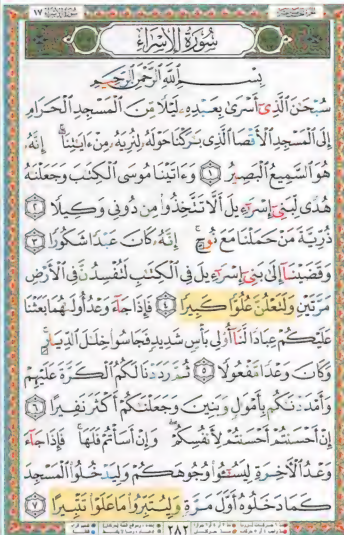 سُورَةُ الإِسۡرَاءِ
بِسۡمِ ٱللَّهِ ٱلرَّحۡمَٰنِ ٱلرَّحِيمِ
سُبۡحَٰنَ ٱلَّذِيٓ أَسۡرَىٰ بِعَبۡدِهِۦ لَيۡلٗا مِّنَ ٱلۡمَسۡجِدِ ٱلۡحَرَامِ
إِلَى ٱلۡمَسۡجِدِ ٱلۡأَقۡصَا ٱلَّذِي بَٰرَكۡنَا حَوۡلَهُۥ لِنُرِيَهُۥ مِنۡ ءَايَٰتِنَآۚ إِنَّهُۥ
هُوَ ٱلسَّمِيعُ ٱلۡبَصِيرُ ١ وَءَاتَيۡنَا مُوسَى ٱلۡكِتَٰبَ وَجَعَلۡنَٰهُ
هُدٗى لِّبَنِيٓ إِسۡرَٰٓءِيلَ أَلَّا تَتَّخِذُواْ مِن دُونِي وَكِيلٗا ٢
ذُرِّيَّةَ مَنۡ حَمَلۡنَا مَعَ نُوحٍۚ إِنَّهُۥ كَانَ عَبۡدٗا شَكُورٗا ٣
وَقَضَيۡنَآ إِلَىٰ بَنِيٓ إِسۡرَٰٓءِيلَ فِي ٱلۡكِتَٰبِ لَتُفۡسِدُنَّ فِي ٱلۡأَرۡضِ
مَرَّتَيۡنِ وَلَتَعۡلُنَّ عُلُوّٗا كَبِيرٗا ٤ فَإِذَا جَآءَ وَعۡدُ أُولَىٰهُمَا بَعَثۡنَا
عَلَيۡكُمۡ عِبَادٗا لَّنَآ أُوْلِي بَأۡسٖ شَدِيدٖ فَجَاسُواْ خِلَٰلَ ٱلدِّيَارِۚ
وَكَانَ وَعۡدٗا مَّفۡعُولٗا ٥ ثُمَّ رَدَدۡنَا لَكُمُ ٱلۡكَرَّةَ عَلَيۡهِمۡ
وَأَمۡدَدۡنَٰكُم بِأَمۡوَٰلٖ وَبَنِينَ وَجَعَلۡنَٰكُمۡ أَكۡثَرَ نَفِيرًا ٦
إِنۡ أَحۡسَنتُمۡ أَحۡسَنتُمۡ لِأَنفُسِكُمۡۖ وَإِنۡ أَسَأۡتُمۡ فَلَهَاۚ فَإِذَا جَآءَ
وَعۡدُ ٱلۡأٓخِرَةِ لِيَسُـُٔواْ وُجُوهَكُمۡ وَلِيَدۡخُلُواْ ٱلۡمَسۡجِدَ
كَمَا دَخَلُوهُ أَوَّلَ مَرَّةٖ وَلِيُتَبِّرُواْ مَا عَلَوۡاْ تَتۡبِيرًا ٧
٢٨٢